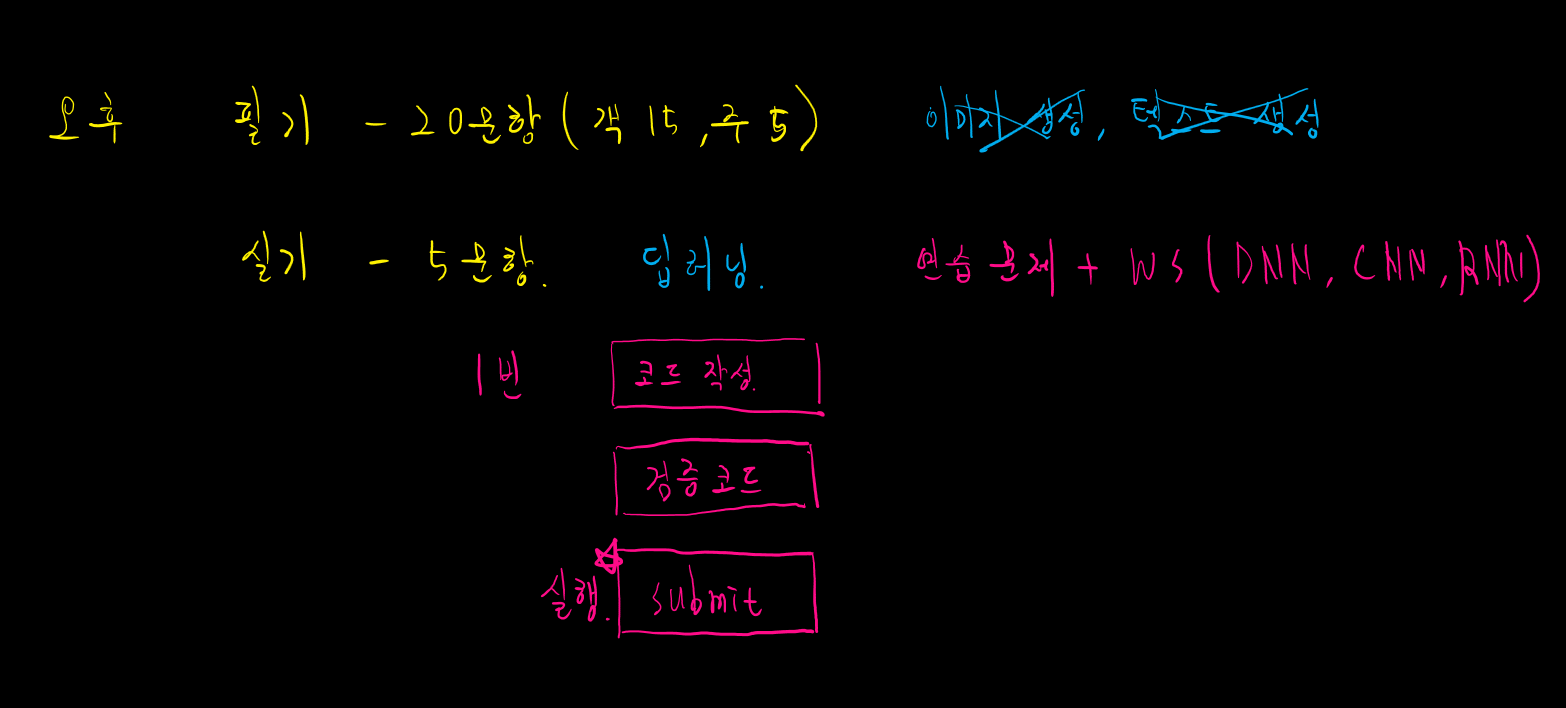 오후 필기 - 20문항 (객 15, 주 5) 이미지 생성, 텍스트 생성
실기 - 5문항. 딥러닝. 연습문제 + WS (DNN, CNN, RNN)
1번 코드 작성.
검증코드
실행. submit